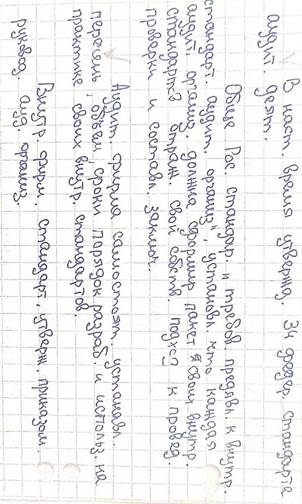 В наст. время утвержд. 34 федер. стандарта
аудит. деят.
Общие Рос. стандар. и требов. предъявл. к внутр.
стандарт. аудит. организ", установл. что каждая
аудит. организ. должна сформир. пакет своих внутр.
стандарт-в отраж. свой собств. подход к провед.
проверки и составл. заключ.
Аудит. фирма самостоят. установл.
перечень, объем, сроки порядок разраб. и использ. на
практике своих внутр. стандартов.
Внутр. фирм. стандарт. утверж. приказом.
руковод. ауд. организ.